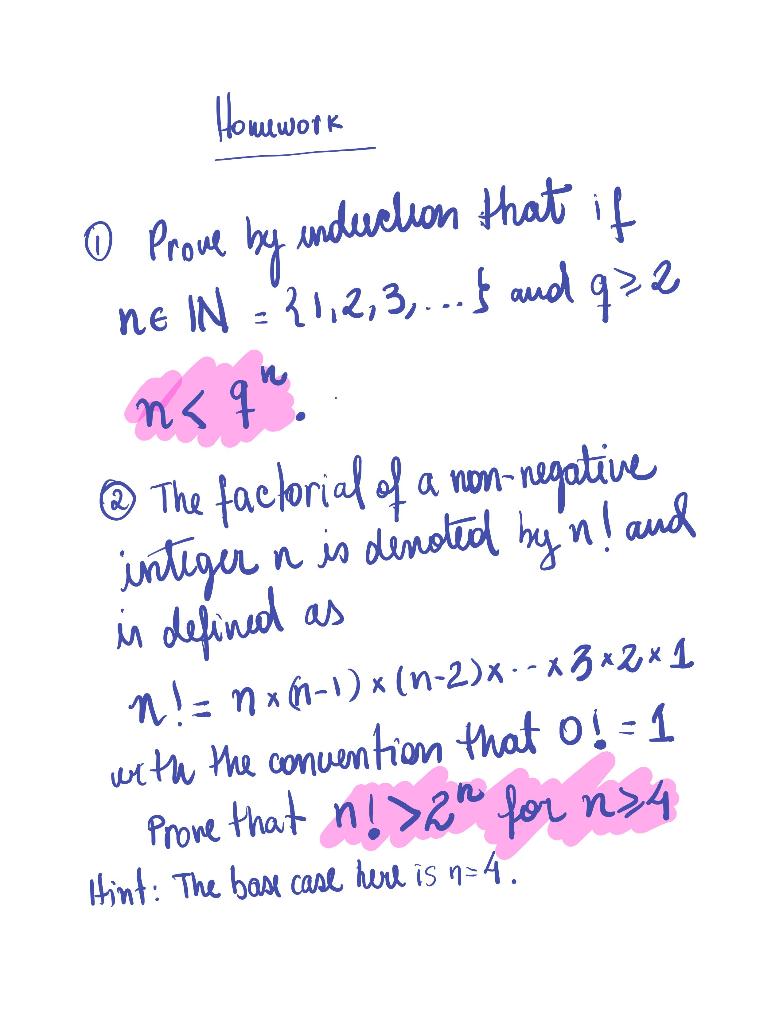 Homework
① Prove by induction that if
n ∈ ℕ = {1,2,3,...} and q ≥ 2
n < qⁿ.
② The factorial of a non-negative
integer n is denoted by n! and
is defined as
n! = n × (n-1) × (n-2) × ... × 3 × 2 × 1
with the convention that 0! = 1
Prove that n! > 2ⁿ for n ≥ 4
Hint: The base case here is n = 4.